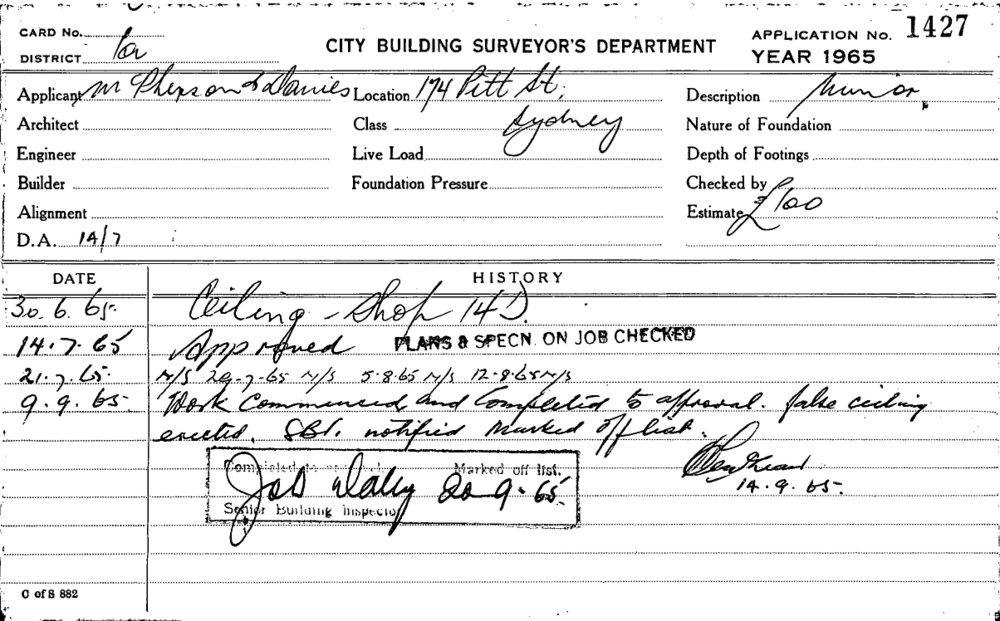 CARD No.
APPLICATION No. 1427
DISTRICT 1a
CITY BUILDING SURVEYOR'S DEPARTMENT
YEAR 1965
Applicant McPherson & Davies Location 174 Pitt St, Description Minor
Architect Class Sydney Nature of Foundation
Engineer Live Load Depth of Footings
Builder Foundation Pressure Checked by
Alignment Estimate £100
D.A. 14/7
DATE HISTORY
30. 6. 65. Ceiling - Shop 14D.
14.7.65 Approved PLANS & SPECN. ON JOB CHECKED
21.7.65. N/S 29-7-65 N/S 5-8-65 N/S 12-8-65 N/S
9.9.65. Work Commenced and Completed to approval. false ceiling
erected. SBI. notified Marked off list.
Completed to approval. Marked off list.
20.9.65.
Senior Building Inspector
14.9.65.
C of S 882